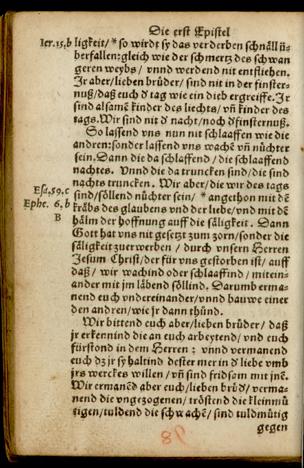 Die erst Epistel
Ier.15,b ligkeit/ *so wirdt sy das verderben schnäll ü-
berfallen: gleich wie der schmertz des schwan
geren weybs/ vnnd werdend nit entfliehen.
Ir aber/lieben brüder/ sind nit in der finster-
nuß/daß euch d tag wie ein dieb ergreiffe. Ir
sind alsamē kinder des liechts/ vn̄ kinder des
tags. Wir sind nit d nacht/noch d finsternuß.
So lassend vns nun nit schlaaffen wie die
andren: sonder lassend vns wachē vn̄ nüchter
sein. Dann die da schlaaffend/ die schlaaffend
nachtes. Vnnd die da truncken sind/die sind
nachts truncken. Wir aber/die wir des tags
Esa.59.c sind/söllend nüchter sein/ *angethon mit dē
Ephe. 6,b kräbs des glaubens vnd der liebe/vnd mit dē
B hälm der hoffnung auff die säligkeit. Dann
Gott hat vns nit gesetzt zum zorn/sonder die
säligkeit zuerwerben/ durch vnsern Herren
Jesum Christ/der für vns gestorben ist/ auff
daß/ wir wachind oder schlaaffind/ mitein-
ander mit jm läbend söllind. Darumb erma-
nend euch vndereinander/vnnd bauwe einer
den andren/wie jr dann thünd.
Wir bittend euch aber/lieben brüder/ daß
jr erkennind die an euch arbeytend/ vnd euch
fürstond in dem Herren: vnnd vermanend
euch dz jr sy haltind dester mer in d liebe vmb
jrs werckes willen/ vn̄ sind fridsam mit jnē.
Wir ermanēd aber euch/lieben brüd/ verma-
nend die vngezogenen/ tröstend die kleinmü
tigen/tuldend die schwachē/ sind tuldmütig
gegen
98